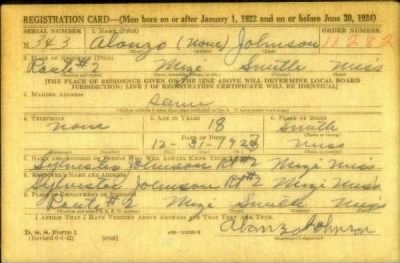 REGISTRATION CARD—(Men born on or after January 1, 1922 and on or before June 30, 1924)
SERIAL NUMBER 1. NAME (Print) ORDER NUMBER
N 343 Alonzo (none) Johnson 11282
2. PLACE OF RESIDENCE (Print)
Route #2 Mize Smith Miss
[THE PLACE OF RESIDENCE GIVEN ON THE LINE ABOVE WILL DETERMINE LOCAL BOARD
JURISDICTION; LINE 2 OF REGISTRATION CERTIFICATE WILL BE IDENTICAL]
3. MAILING ADDRESS
Same
4. TELEPHONE 5. AGE IN YEARS 6. PLACE OF BIRTH
none 18 Smith
DATE OF BIRTH
12-31-1923 Miss
7. NAME AND ADDRESS OF PERSON WHO WILL ALWAYS KNOW YOUR ADDRESS
Sylvister Johnson Rt #2 Mize Miss
8. EMPLOYER'S NAME AND ADDRESS
Sylvister Johnson Rt #2 Mize Miss
9. PLACE OF EMPLOYMENT OR BUSINESS
Route #2 Mize Smith Miss
I AFFIRM THAT I HAVE VERIFIED ABOVE ANSWERS AND THAT THEY ARE TRUE.
D. S. S. Form 1
(over)
Alonzo Johnson